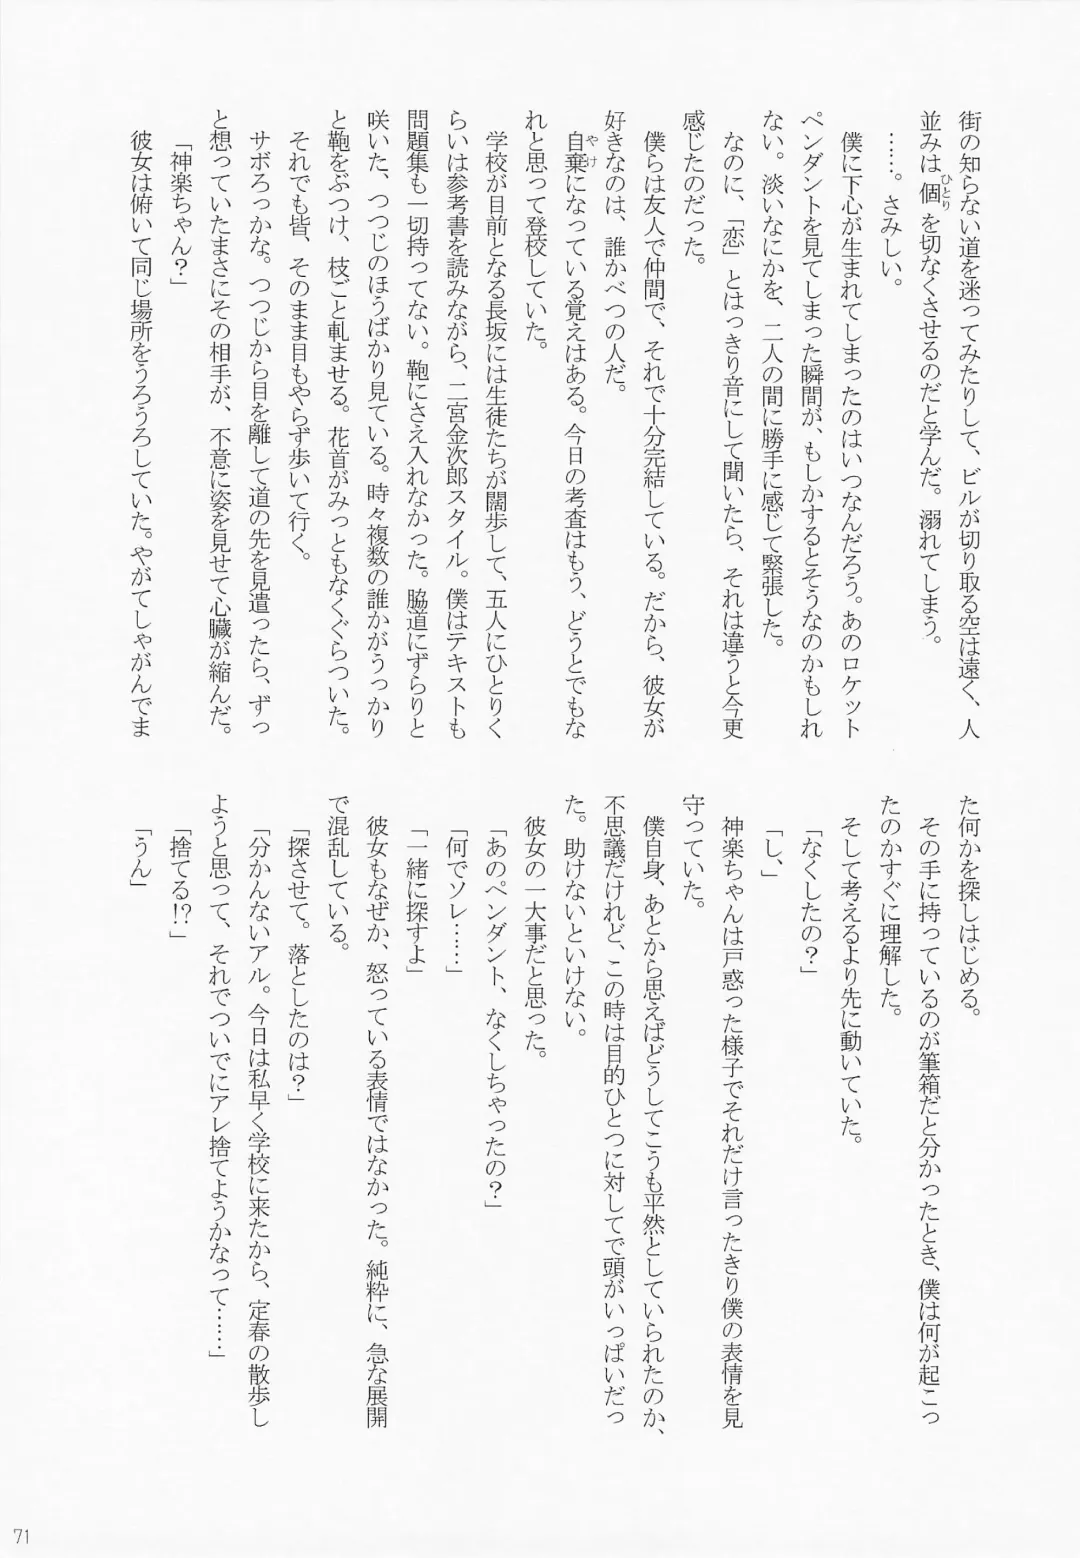 街の知らない道を迷ってみたりして、ビルが切り取る空は遠く、人
並みは個ひとりを切なくさせるのだと学んだ。溺れてしまう。
……。さみしい。
僕に下心が生まれてしまったのはいつなんだろう。あのロケット
ペンダントを見てしまった瞬間が、もしかするとそうなのかもしれ
ない。淡いなにかを、二人の間に勝手に感じて緊張した。
なのに、「恋」とはっきり音にして聞いたら、それは違うと今更
感じたのだった。
僕らは友人で仲間で、それで十分完結している。だから、彼女が
好きなのは、誰かべつの人だ。
自棄やけになっている覚えはある。今日の考査はもう、どうとでもな
れと思って登校していた。
学校が目前となる長坂には生徒たちが闊歩して、五人にひとりく
らいは参考書を読みながら、二宮金次郎スタイル。僕はテキストも
問題集も一切持ってない。鞄にさえ入れなかった。脇道にずらりと
咲いた、つつじのほうばかり見ている。時々複数の誰かがうっかり
と鞄をぶつけ、枝ごと軋ませる。花首がみっともなくぐらついた。
それでも皆、そのまま目もやらず歩いて行く。
サボろっかな。つつじから目を離して道の先を見遣ったら、ずっ
と想っていたまさにその相手が、不意に姿を見せて心臓が縮んだ。
「神楽ちゃん？」
彼女は俯いて同じ場所をうろうろしていた。やがてしゃがんでま
た何かを探しはじめる。
その手に持っているのが筆箱だと分かったとき、僕は何が起こっ
たのかすぐに理解した。
そして考えるより先に動いていた。
「なくしたの？」
「し、」
神楽ちゃんは戸惑った様子でそれだけ言ったきり僕の表情を見
守っていた。
僕自身、あとから思えばどうしてこうも平然としていられたのか、
不思議だけれど、この時は目的ひとつに対してで頭がいっぱいだっ
た。助けないといけない。
彼女の一大事だと思った。
「あのペンダント、なくしちゃったの？」
「何でソレ……」
「一緒に探すよ」
彼女もなぜか、怒っている表情ではなかった。純粋に、急な展開
で混乱している。
「探させて。落としたのは？」
「分かんないアル。今日は私早く学校に来たから、定春の散歩し
ようと思って、それでついでにアレ捨てようかなって……」
「捨てる!?」
「うん」
71